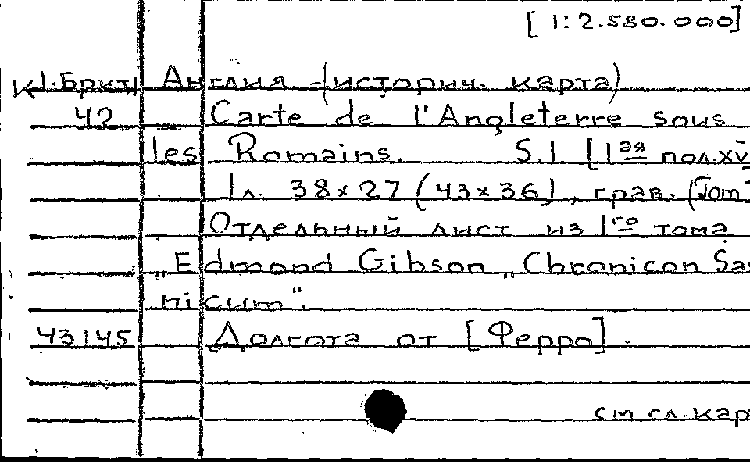 [1:2.580.000]
К1.Брит Англия (историч. карта)
42 Carte de l'Angleterre sous
les Romains. S.l [1ая пол.XV
1л. 38x27 (43x36), грав.
Отдельный лист из 1го тома
„Edmond Gibson „Chronicon Sa
nicum".
43145 Долгота от [Ферро].
см гл. кар